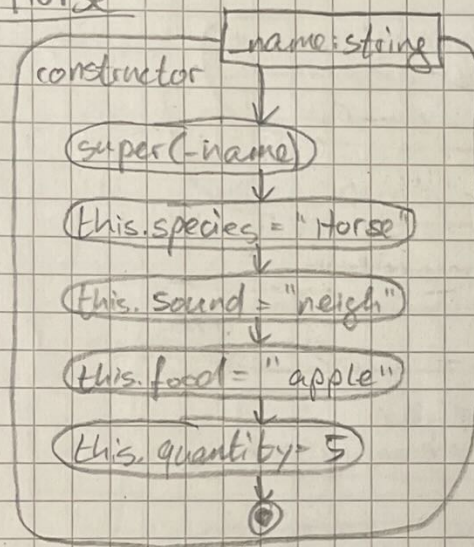 Horse
_name:string
constructor
super(_name)
this.species = "Horse"
this.sound = "neigh"
this.food = "apple"
this.quantity = 5